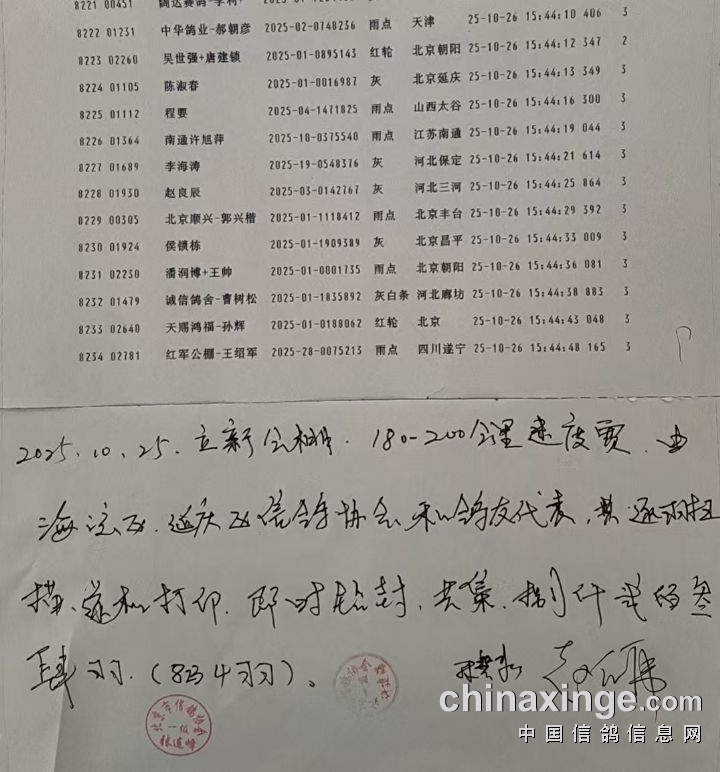 8221 00451
8222 01231 中华鸽业-郝朝彦 2025-02-0748236 雨点 天津 25-10-26 15:44:10 406 3
8223 02260 吴世强+唐建锁 2025-01-0895143 红轮 北京朝阳 25-10-26 15:44:12 347 2
8224 01105 陈淑春 2025-01-0016987 灰 北京延庆 25-10-26 15:44:13 349 3
8225 01112 程要 2025-04-1471825 雨点 山西太谷 25-10-26 15:44:16 300 3
8226 01364 南通许旭萍 2025-10-0375540 雨点 江苏南通 25-10-26 15:44:19 044 3
8227 01689 李海涛 2025-19-0548376 灰 河北保定 25-10-26 15:44:21 614 3
8228 01930 赵良辰 2025-03-0142767 灰 河北三河 25-10-26 15:44:25 864 3
8229 00305 北京顺兴-郭兴楷 2025-01-1118412 雨点 北京丰台 25-10-26 15:44:29 392 3
8230 01924 侯锁栋 2025-01-1909389 灰 北京昌平 25-10-26 15:44:33 009 3
8231 02230 潘润博+王帅 2025-01-0001735 雨点 北京朝阳 25-10-26 15:44:36 081 3
8232 01479 诚信鸽舍-曹树松 2025-01-1835892 灰白条 河北廊坊 25-10-26 15:44:38 883 3
8233 02640 天赐鸿福-孙辉 2025-01-0188062 红轮 北京 25-10-26 15:44:43 048 3
8234 02781 红军公棚-王绍军 2025-28-0075213 雨点 四川遂宁 25-10-26 15:44:48 165 3
2025.10.25.立新公棚.180-200公里速度赛.由
海淀区.延庆区信鸽协会和鸽友代表,共逐羽扫
描、打印.即时封,共集.捌仟贰佰叁
肆羽.(8234羽)。
chinaxinge.com
中国信鸽信息网